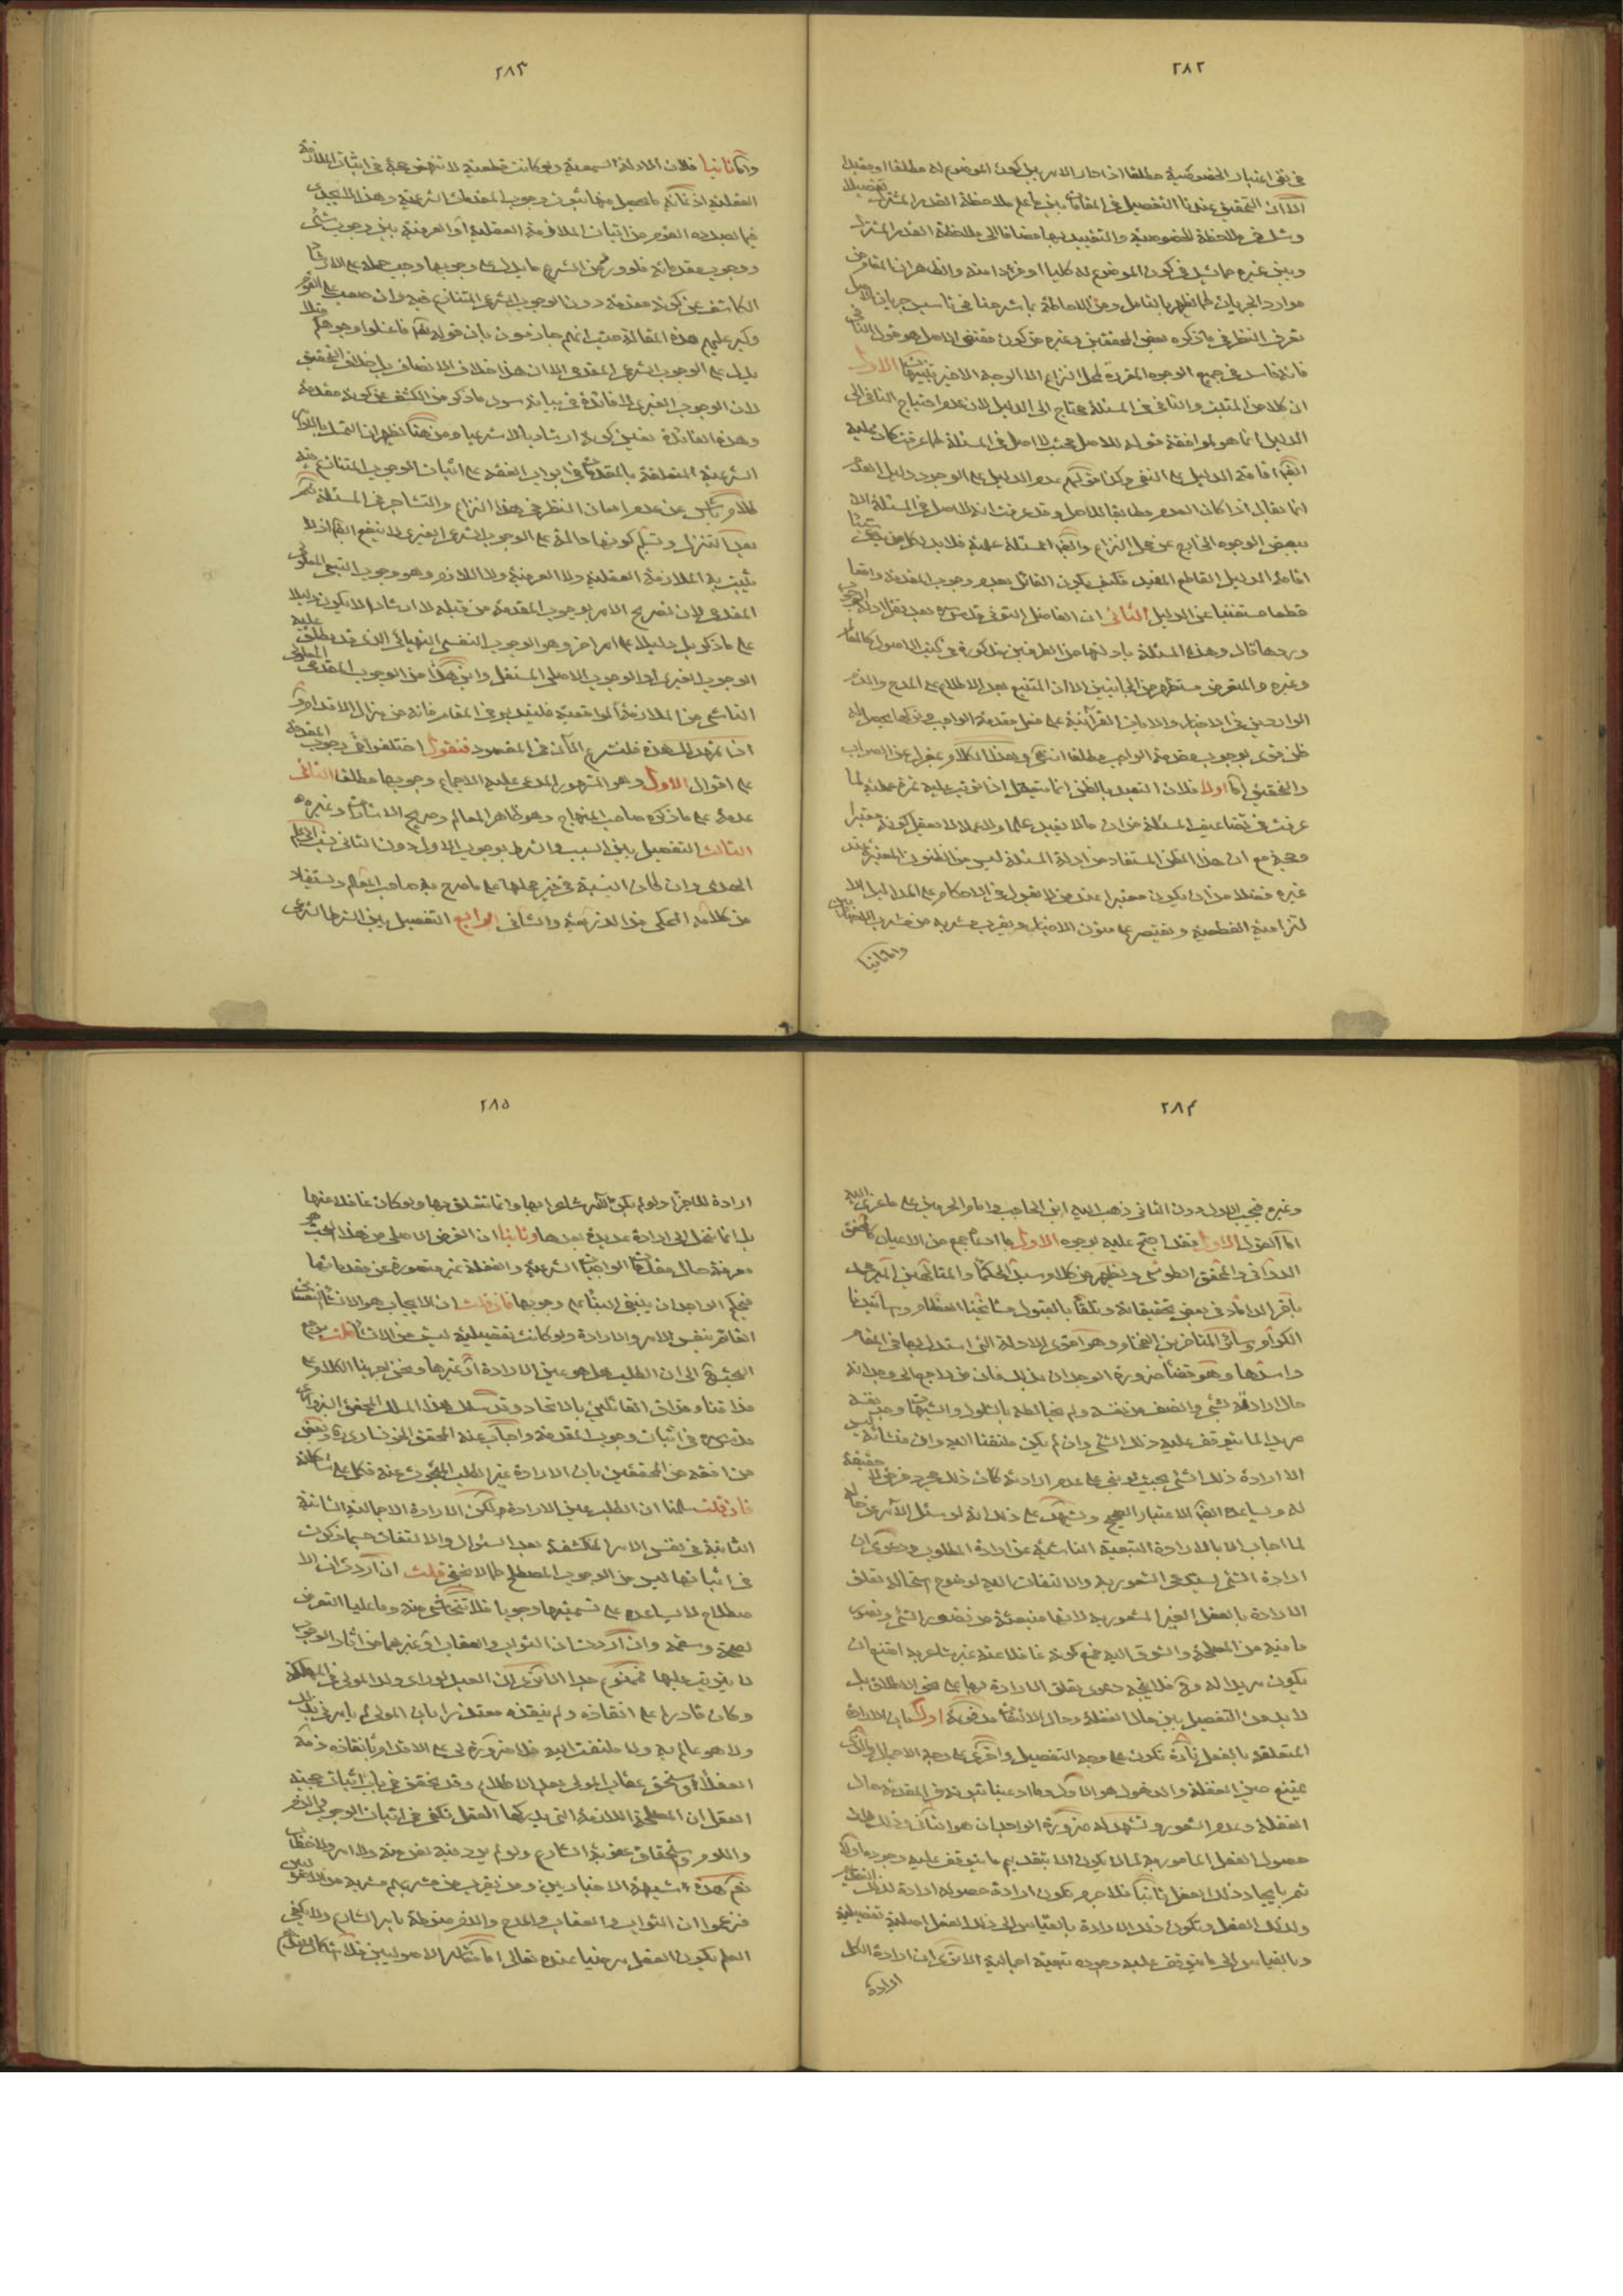 ٢٨٢
في نفي اعتبار الخصوصية مطلقا اذا دار الامر بين كون الموضوع له مطلقا او مقيدا
الا ان التحقيق عندنا التفصيل في المقامات بين ما علم ملاحظة القدر المشترك تفصيلا
وشك في ملاحظة الخصوصية والتقييد بها مضافا الى ملاحظة القدر المشترك
وبين غيره مما شك في كون الموضوع له كليا او فردا منه والظاهر ان المقام من
موارد الجريان كما يظهر بالتامل ومن الاحاطة بما شرحنا في تاسيس جريان الاصل
تعرف النظر في ما ذكره بعض المحققين وغيره من كون مقتضى الاصل هو قول النافي
فانه فاسد في جميع الوجوه المقررة لمحل النزاع الا الوجه الاخير تنبيهات الاول
ان كلا من المثبت والنافي في المسئلة محتاج الى الدليل لان عدم احتياج النافي الى
الدليل انما هو لموافقة قوله للاصل فحيث لا اصل في المسئلة كما عرفت كان عليه
ايضا اقامة الدليل على النفي وكذا قولهم عدم الدليل على الوجود دليل العدم
انما يقال اذا كان العدم مطابقا للاصل وقد عرفت انه لا اصل في المسئلة الا
ببعض الوجوه الخارج عن محل النزاع وايضا المسئلة علمية فلا بد لكل من يدعي شيئا
اقامة الدليل القاطع المفيد فكيف يكون القائل بعدم وجوب المقدمة واقعا
قطعا مستغنيا عن الدليل الثاني ان الفاضل التوني قدس سره بعد نقل ادلة الوجوب
وردها قال وهذه المسئلة بادلتها من الطرفين مذكورة في كتب الاصول كالمعالم
وغيره والمعترض مستظهر من الجانبين الا ان المتتبع بعد الاطلاع على المدح والذم
الواردين في الاخبار والايات القرآنية على فعل مقدمة الواجب وتركها يحصل له
ظن قوي بوجوب مقدمة الواجب مطلقا انتهى وهذا الكلام بمعزل عن الصواب
والتحقيق اما اولا فلان التعبد بالظن انما يتعقل اذا ترتب عليه ثمرة عملية لما
عرفت في تضاعيف المسئلة من ان ما لا يفيد علما ولا عملا لا يعقل كونه معتبرا
وحجة مع ان هذا الظن المستفاد من ادلة المسئلة ليس من الظنون المعتبرة عند
غيره فضلا من ان يكون معتبرا عند من لا يقول في الاحكام على المداليل الا
لتزامية القطعية ويقتصر على متون الاخبار ويقرب مشربه من مشرب الاخباريين
واما ثانيا
٢٨٣
واما ثانيا فلان الادلة السمعية ولو كانت قطعية لا تنهض حجة في اثبات الملازمة
العقلية اذ غاية ما يحصل منها ثبوت وجوب المقدمات الشرعية وهذا لا يجدي
فيما بصدده القوم من اثبات الملازمة العقلية او العرفية بين وجوب شئ
ووجوب مقدماته فلو ورد من الشرع ما يدل على وجوبها وجب حمله على الارشاد
الكاشف عن كونه مقدمة دون الوجوب الشرعي المتنازع فيه وان صعب على القوم
وكبر عليهم هذه المقالة حيث انهم جازمون بان قوله تعالى فاغسلوا وجوهكم مثلا
يدل على الوجوب الشرعي المقدمي الا ان هذا خلاف الانصاف بل خلاف التحقيق
لان الوجوب الغيري لا فائدة في بيانه سوى ما ذكر من الكشف عن كونه مقدمة
وهذه الفائدة تعين كونه ارشاديا لا شرعيا ومن هنا ظهر ان التمسك بالاوامر
الشرعية المتعلقة بالمقدمات في ابواب الفقه على اثبات الوجوب المتنازع فيه
كلام ناش عن عدم امعان النظر في هذا النزاع والتشاجر في المسئلة نعم
بعد التنزل وتسليم كونها دالة على الوجوب الشرعي الغيري لا ينفع ايضا اذ لا
يثبت به الملازمة العقلية ولا العرفية ولا اللازم وهو وجوب التبعي المعلولي
المقدمي لان تصريح الامر بوجوب المقدمة من قبله لا ارشادا لا يكون دليلا
على ما ذكر بل دليلا على امر اخر وهو الوجوب النفسي التهيائي الذي قد يطلق عليه
الوجوب الغيري او الوجوب الاصلي المستقل واين هذا من الوجوب المقدمي المعلولي
الناشي من الملازمة الواقعية فليتدبر في المقام فانه من مزال الاقدام و
اذا تمهد لك هذه فلنشرع الآن في المقصود فنقول اختلفوا في وجوب المقدمة
على اقوال الاول وهو المشهور المدعى عليه الاجماع وجوبها مطلقا الثاني
عدمه على ما ذكره صاحب المنهاج وهو ظاهر المعالم وصريح الاشارات وغيره
الثالث التفصيل بين السبب والشرط بوجوب الاول دون الثاني نسب الى علم
الهدى وان كان النسبة في غير محلها على ما صرح به صاحب المعالم ويستفاد
من كلامه المحكي من الذريعة والشافي الرابع التفصيل بين الشرط الشرعي
٢٨٤
وغيره فيجب الاول دون الثاني ذهب اليه ابن الحاجب وامام الحرمين على ما عزي اليه
اما القول الاول فقد احتج عليه بوجوه الاول ما ادعاه جمع من الاعيان كالمحقق
الدواني والمحقق الطوسي ويظهر من كلام سيد الحكماء والمتالهين المير محمد
باقر الداماد في بعض تحقيقاته وتلقاه بالقبول مشايخنا العظام واساتيدنا
الكرام وسائر المتاخرين الفخام وهو اقوى الادلة التي استدل بها في المقام
واسدها وهو قضاء ضرورة الوجدان بذلك فان من راجع الى وجدانه
حال ارادته لشئ وانصف من نفسه ولم يخالطه بالشكوك والشبهات وجد نفسه
مريدا لما يتوقف عليه ذلك الشئ وان لم يكن ملتفتا اليه وان منشائه ليس
الا ارادة ذلك الشئ بحيث لو بنى على عدم ارادته كان ذلك مجرد فرض لا حقيقة
له ويساعده ايضا الاعتبار الصحيح ويشهد على ذلك انه لو سئل الآمر عن حاله
لما اجاب الا بالارادة التبعية الناشئة عن ارادة المطلوب ودعوى ان
ارادة الشئ يستدعي الشعور به والالتفات اليه لوضوح استحالة تعلق
الارادة بالفعل الغير المشعور به لانها منبعثة من تصور الشئ وتصور
ما فيه من المصلحة والشوق اليه فمع كونه غافلا عنه غير شاعر به امتنع ان
يكون مريدا له وح فلا يتجه دعوى تعلق الارادة بها على نحو الاطلاق بل
لا بد من التفصيل بين حال الغفلة وحال الالتفات مدفوعة اولا بان الارادة
المتعلقة بالفعل تارة تكون على وجه التفصيل واخرى على وجه الاجمال والذي
يمتنع حين الغفلة والذهول هو الاول وما ادعينا ثبوته في المقدمة حال
الغفلة وعدم الشعور وتشهد له ضرورة الوجدان هو الثاني وذلك لان
حصول الفعل المامور به لما لا يكون الا بتقديم ما يتوقف عليه وجوده اولا
ثم بايجاد ذلك الفعل ثانيا فلا جرم تكون ارادة حصوله ارادة لذلك
ولذلك الفعل وتكون هذه الارادة بالقياس الى ذلك الفعل اصلية تفصيلية
وبالقياس الى ما يتوقف عليه وجوده تبعية اجمالية الا ترى ان ارادة الكل
ارادة
٢٨٥
ارادة للاجزاء ولو لم يكن الآمر شاعرا بها وانما تتعلق بها ولو كان غافلا عنها
بل انما تنحل الى ارادة عديدة بعدها وثانيا ان الغرض الاصلي من هذا البحث هو
معرفة حال مقدمات الواجبات الشرعية والغفلة غير متصورة عن مقدماتها
فيحكم الوجدان ينبغي البناء على وجوبها فان قلت ان الايجاب هو الانشاء
القائم بنفس الامر والارادة ولو كانت تفصيلية ليست من الانشاء قلت مرجع
البحث الى ان الطلب هل هو عين الارادة او غيرها ونحن اجرينا الكلام على
مذاقنا ومذاق القائلين بالاتحاد وقد سلك هذا المسلك المحقق السبزواري
قدس سره في اثبات وجوب المقدمة واجاب عنه المحقق الخونساري ره وبعض
من وافقه من المحققين بان الارادة غير الطلب المبحوث عنه فكل على شاكلته
فان قلت سلمنا ان الطلب عين الارادة ولكن الارادة الاجمالية الشانية
الثابتة في نفس الامر المنكشفة بعد السئوال والالتفات حسبما ذكرت
في اثباتها ليس من الوجوب المصطلح كما لا يخفى قلت ان اردت ان الا
صطلاح لا يساعد على تسميتها وجوبا فلا نتحاشى منه وما علينا التعرض
لصحته وسقمه وان اردت ان الثواب والعقاب او غيرهما من اثار الوجوب
لا يترتب عليها فممنوع جدا الا ترى ان العبد لو راى ولد المولى في المهلكة
وكان قادرا على انقاذه ولم ينقذه معتذرا بان المولى لم يامرني بذلك
ولا هو عالم به ولا ملتفت اليه فلا ضرورة لي على الاقدام بانقاذه ذمه
العقلاء واستحق عقاب المولى بعد الاطلاع وقد تحقق في باب اثبات حجية
العقل ان المصلحة اللازمة التي يدركها العقل تكفي في اثبات الوجوب والذم
واللوم واستحقاق عقوبة الشارع ولو لم يرد فيه نص منه ولا امر ولا خطاب
نعم هذه شبهة الاخباريين ومن يقرب من مشربهم مشربه من الاصوليين
فزعموا ان الثواب والعقاب والمدح والذم منوطة بامر الشارع ولا يكفي
العلم بكون الفعل مرضيا عنده تعالى اما معاشر الاصوليين فلا اشكال عندهم